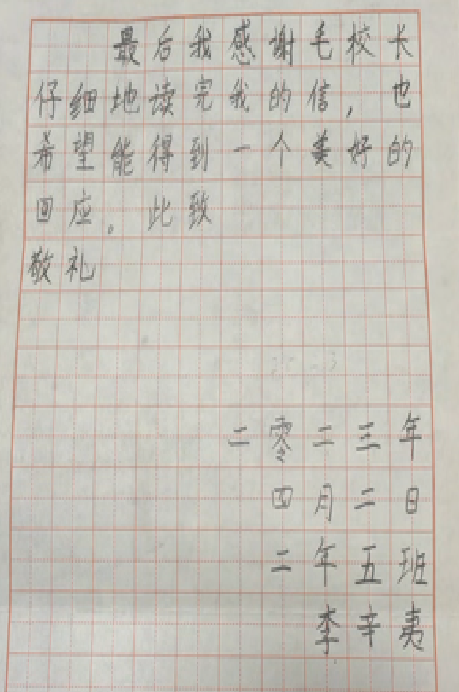 最后我感谢毛校长
仔细地读完我的信，也
希望能得到一个美好的
回应。此致
敬礼
二零二三年
四月二日
二年五班
李辛夷